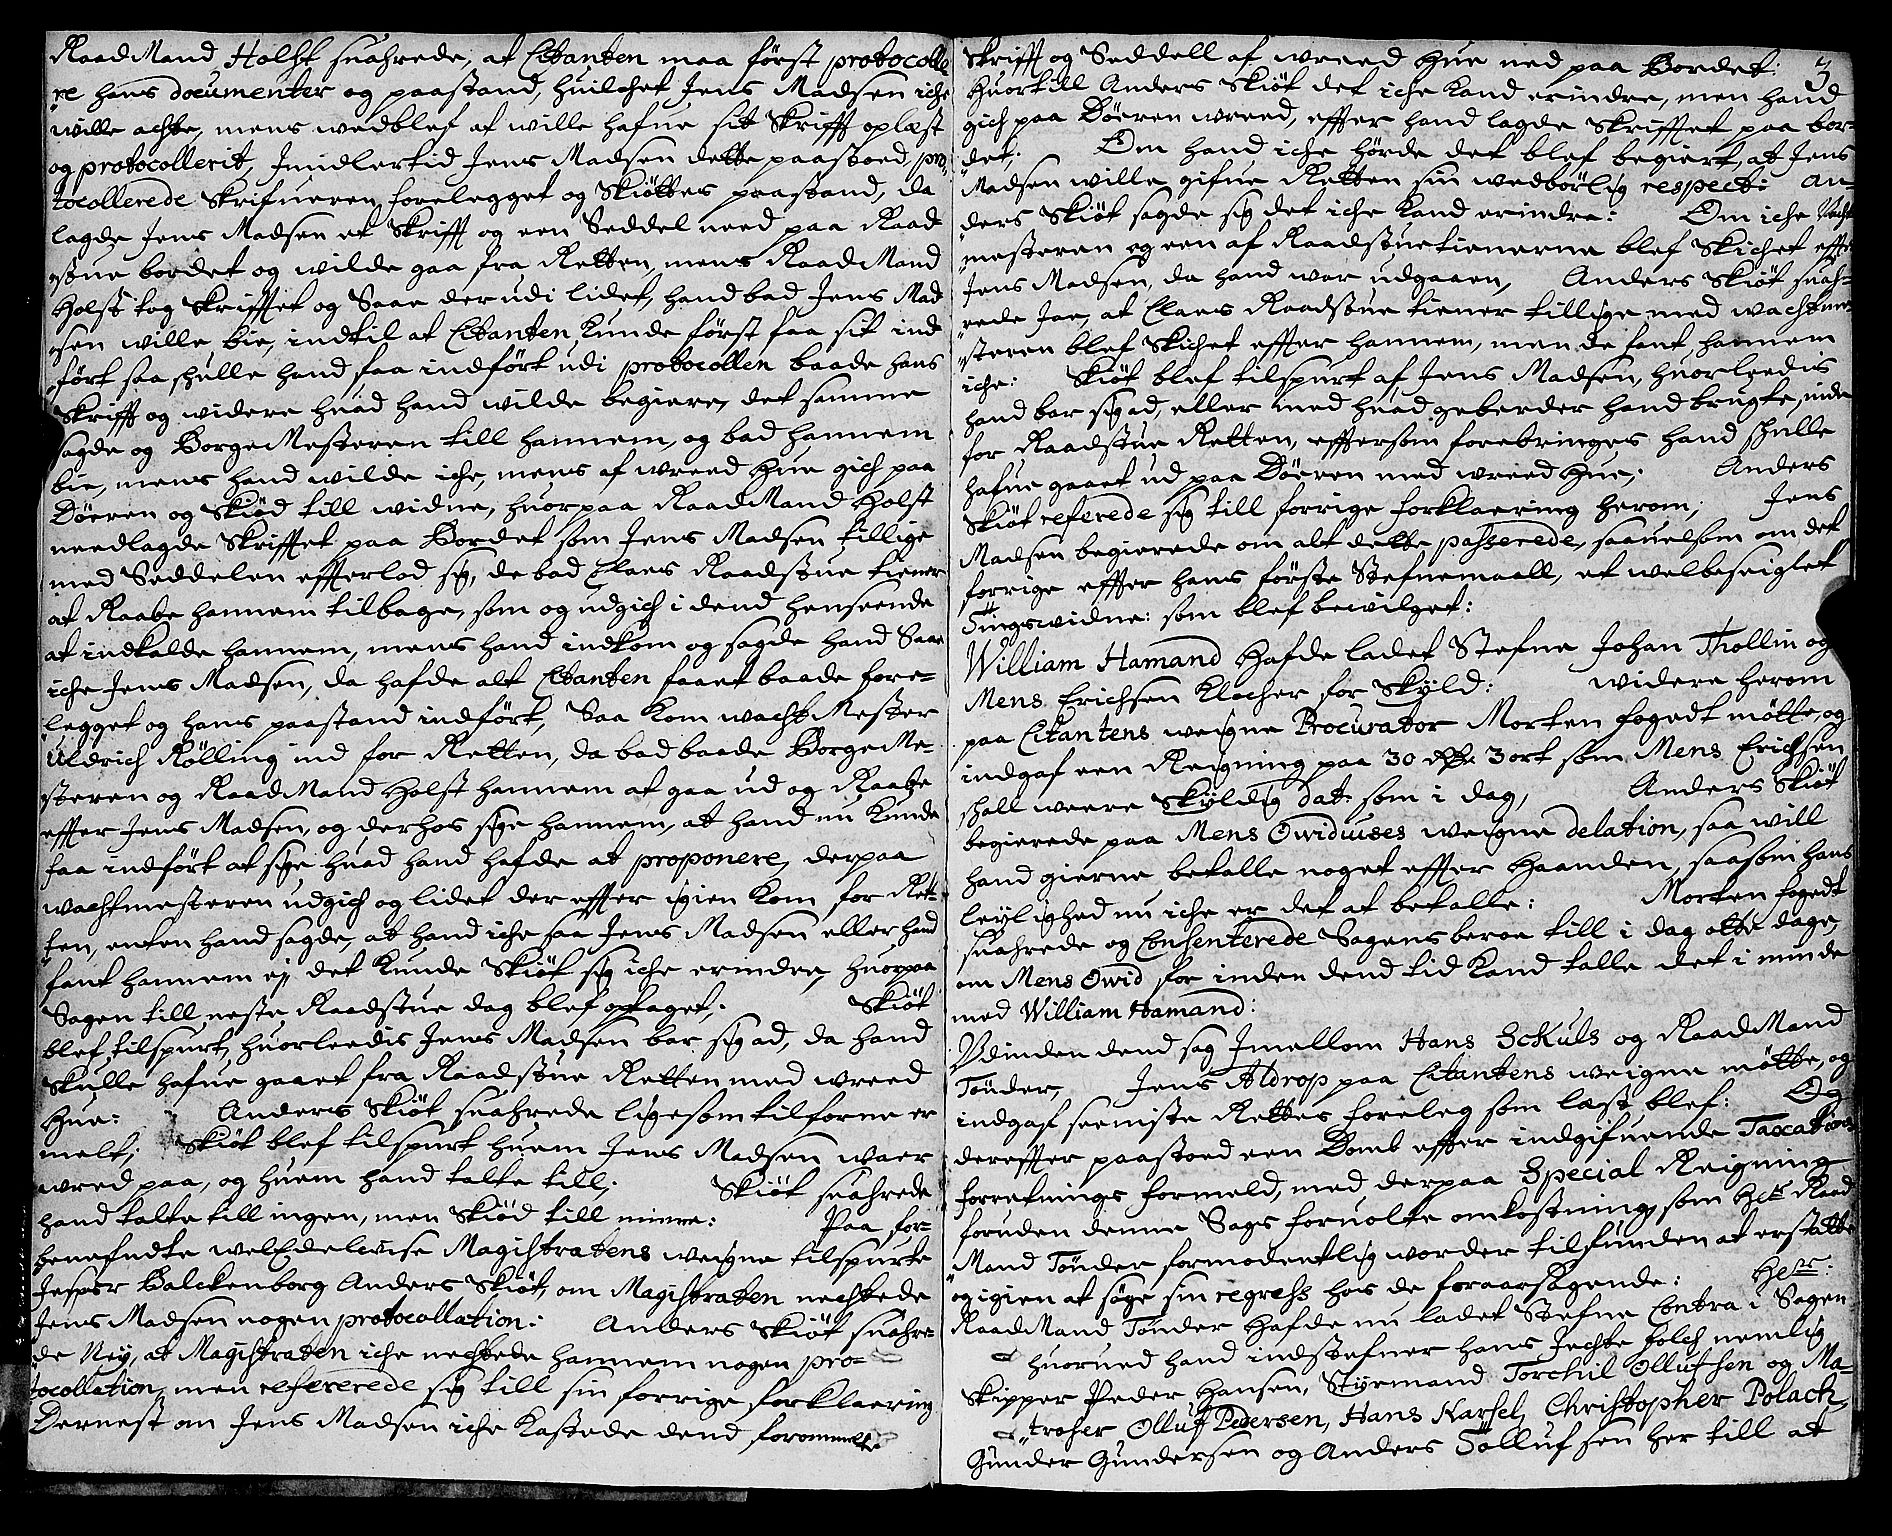 RaadMand Holst suahrede, at Citanten maa først protocolle
re hans documenter og paastand, huilchet Jens Madsen iche
wille achte, mens wedblef at wille hafue sit Skrifft oplæst
og protocollerit, Imidlertid Jens Madsen dette paastoed, pro-
tocollerede Skrifueren forelegget og Skiøttes paastand, da
lagde Jens Madsen et Skrifft og een Seddel need paa Raad
stue bordet og wilde gaa fra Retten, mens RaadMand
Holst tog Skrifftet og Saae derudi lidet, hand bad Jens Mad
sen wille bie, indtil at Citanten kunde først faa sit ind
ført saa skulle hand faa indført udi protocollen baade hans
Skrifft og widere huad hand wilde begiere, det samme
sagde og BorgeMesteren till hannem, og bad hannem
bie, mens hand wilde iche, mens af wreed Hue gich paa
Døeren og Skiød till widne, huorpaa RaadMand Holst
needlagde Skrifftet paa Bordet som Jens Madsen tillige
med Seddelen effterlod sig, de bad Claes Raadstue tiener
at Raabe hannem tilbage, som og udgich i dend henseende
at indkalde hannem, mens hand indkom og sagde hand Saae
iche Jens Madsen, da hafde alt Citanten faaet baade fore-
legget og hans paastand indført, Saa kom wacht Mester
Uldrich Rølling ind for Retten, da bad baade BorgeMe-
steren og RaadMand Holst hannem at gaa ud og Raabe
effter Jens Madsen, og derhos sige hannem, at hand nu kunde
faa indført at sige huad hand hafde at proponere, derpaa
wachtmesteren udgich og lidet der effter igien kom for Ret-
ten, enten hand sagde, at hand iche saa Jens Madsen eller hand
fant hannem ej det kunde Skiøt sig iche erindre, huorpaa
Sagen till neste Raadstue dag blef optaget; Skiøt
blef tilspurt, huorleedis Jens Madsen bar sig ad, da hand
skulle hafue gaaet fra Raadstue Retten med wreed
Hue: Anders Skiøt suahrede ligesom tilforne er
melt; Skiøt blef tilspurt huem Jens Madsen waer
wred paa, og huem hand talte till; Skiøt suahrede
hand talte till ingen, men Skiød till minne: Paa for-
benefndte welEdelwise Magistratens weigne tilspurte
Jesper Balckenborg Anders Skiøt, om Magistraten nechtede
Jens Madsen nogen protocollation: Anders Skiøt suahre-
de Ney, at Magistraten iche nechtede hannem nogen pro-
tocollation, men refererede sig till sin forrige forklaering
Dernest om Jens Madsen iche kastede dend forommelte
3
Skrifft og Seddell af wreed Hue ned paa Bordet:
huortill Anders Skiøt det iche kand erindre, men hand
gich paa Døeren wreed, effter hand lagde Skrifftet paa bor-
det; Om hand iche hørde det blef begiert, att Jens
Madsen wille gifue Retten sin wedbørlig respect: An-
ders Skiøt sagde sig det iche kand erindre: Om iche Vacht
mesteren og een af Raadstuetienerne blef Skichet effter
Jens Madsen, da hand war udgaaen, Anders Skiøt suah-
rede Jae, at Claes Raadstue tiener tillige med wachtme-
steren blef Skichet effter hannem, men de fant hannem
iche: Skiøt blef tilspurt af Jens Madsen, huorleedis
hand bar sig ad, eller med huad geberder hand brugte, inde
for Raadstue Retten, efftersom forebringes hand skulle
hafue gaaet ud paa Døeren med wreed Hue; Anders
Skiøt referede sig till forrige forklaering herom; Jens
Madsen begierede om alt dette passerede, saauelsom om det
forrige effter hans første Stefnemaall, et welbeseiglet
Tingswidne: som blef bewilget:
William Hamand Hafde ladet Stefne Johan Thollin og
Mens Erichsen Klocher for Skyld: widere herom
paa Citantens weigne Procurator Morten fogedt møtte, og
indgaf een Reigning paa 30 Rdr 3 ort som Mens Erichsen
shall weere Skyldig dat: som i dag, Anders Skiøt
begierede paa Mens Owiduises weigne delation, saa will
hand gierne betalle noget effter Haanden, saasom hans
leylighed nu iche er det at betalle: Morten fogedt
suahrede og Consenterede Sagens beroe till i dag otte dage,
om Mens Owid for inden dend tid kand talle det i minde
med William Hamand:
Udinden dend sag Imellom Hans Schuls og RaadMand
Tønder, Jens Aldrop paa Citantens weigne møtte, og
indgaf seeniste Rettes foreleg som læst blef: Og
dereffter paastoed een Domb effter indgifuende Taxations
forretnings formeld, med derpaa Special Reigning
foruden denne Sags foruolte omkostning, som Her Raad
Mand Tønder formodentlig worder tilfunden at erstatte
og igien at søge sin regress hos de foraarsagende: Her:
RaadMand Tønder Hafde nu ladet Stefne Contra i Sagen
huorued hand indstefner hans Jechte folch nemlig
Skipper Peder Hansen, Styrmand Torchil Ollufsen og Ma-
troser Olluf Pedersen, Hans Karsel, Christopher Polach,
Gunder Gundersen og Anders Tollufsen her till at